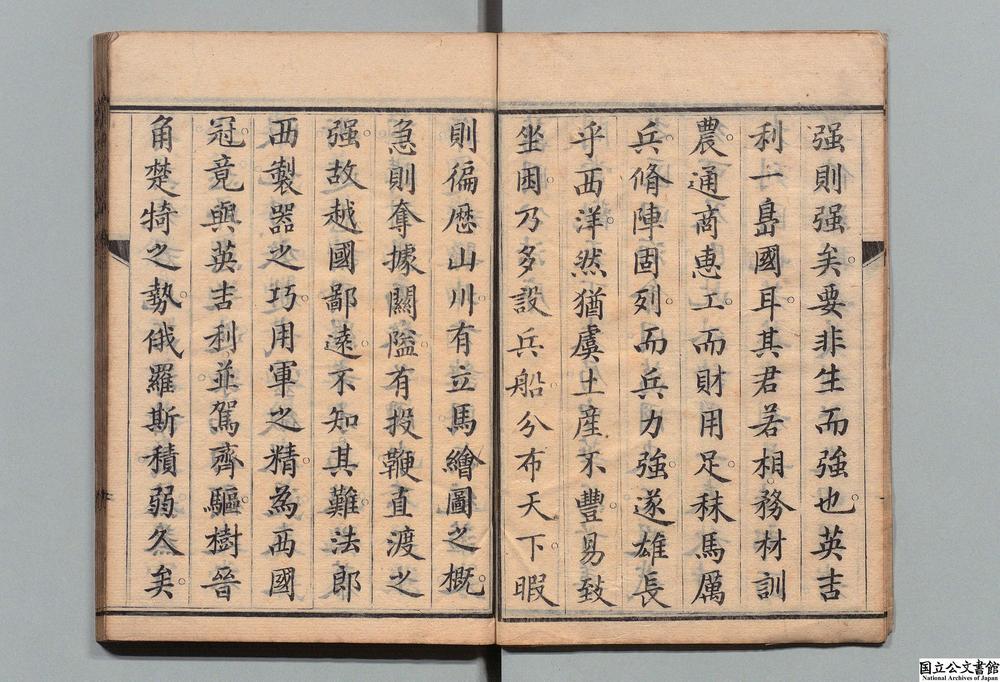 强則强矣。要非生而强也。英吉
利一㠀國耳。其君若相。務材訓
農。通商惠工。而財用足。秣馬厲
兵。脩陣固列。而兵力强。遂雄長
乎西洋。然猶虞土產不豐。易致
坐困。乃多設兵船。分布天下。暇
則徧歷山川。有立馬繪圖之概。
急則奪據關隘。有投鞭直渡之
强。故越國鄙遠。不知其難。法郎
西製器之巧。用軍之精。為西國
冠。竟與英吉利。並駕齊驅。樹晉
角楚犄之勢。俄羅斯積弱久矣。
国立公文書館
National Archives of Japan